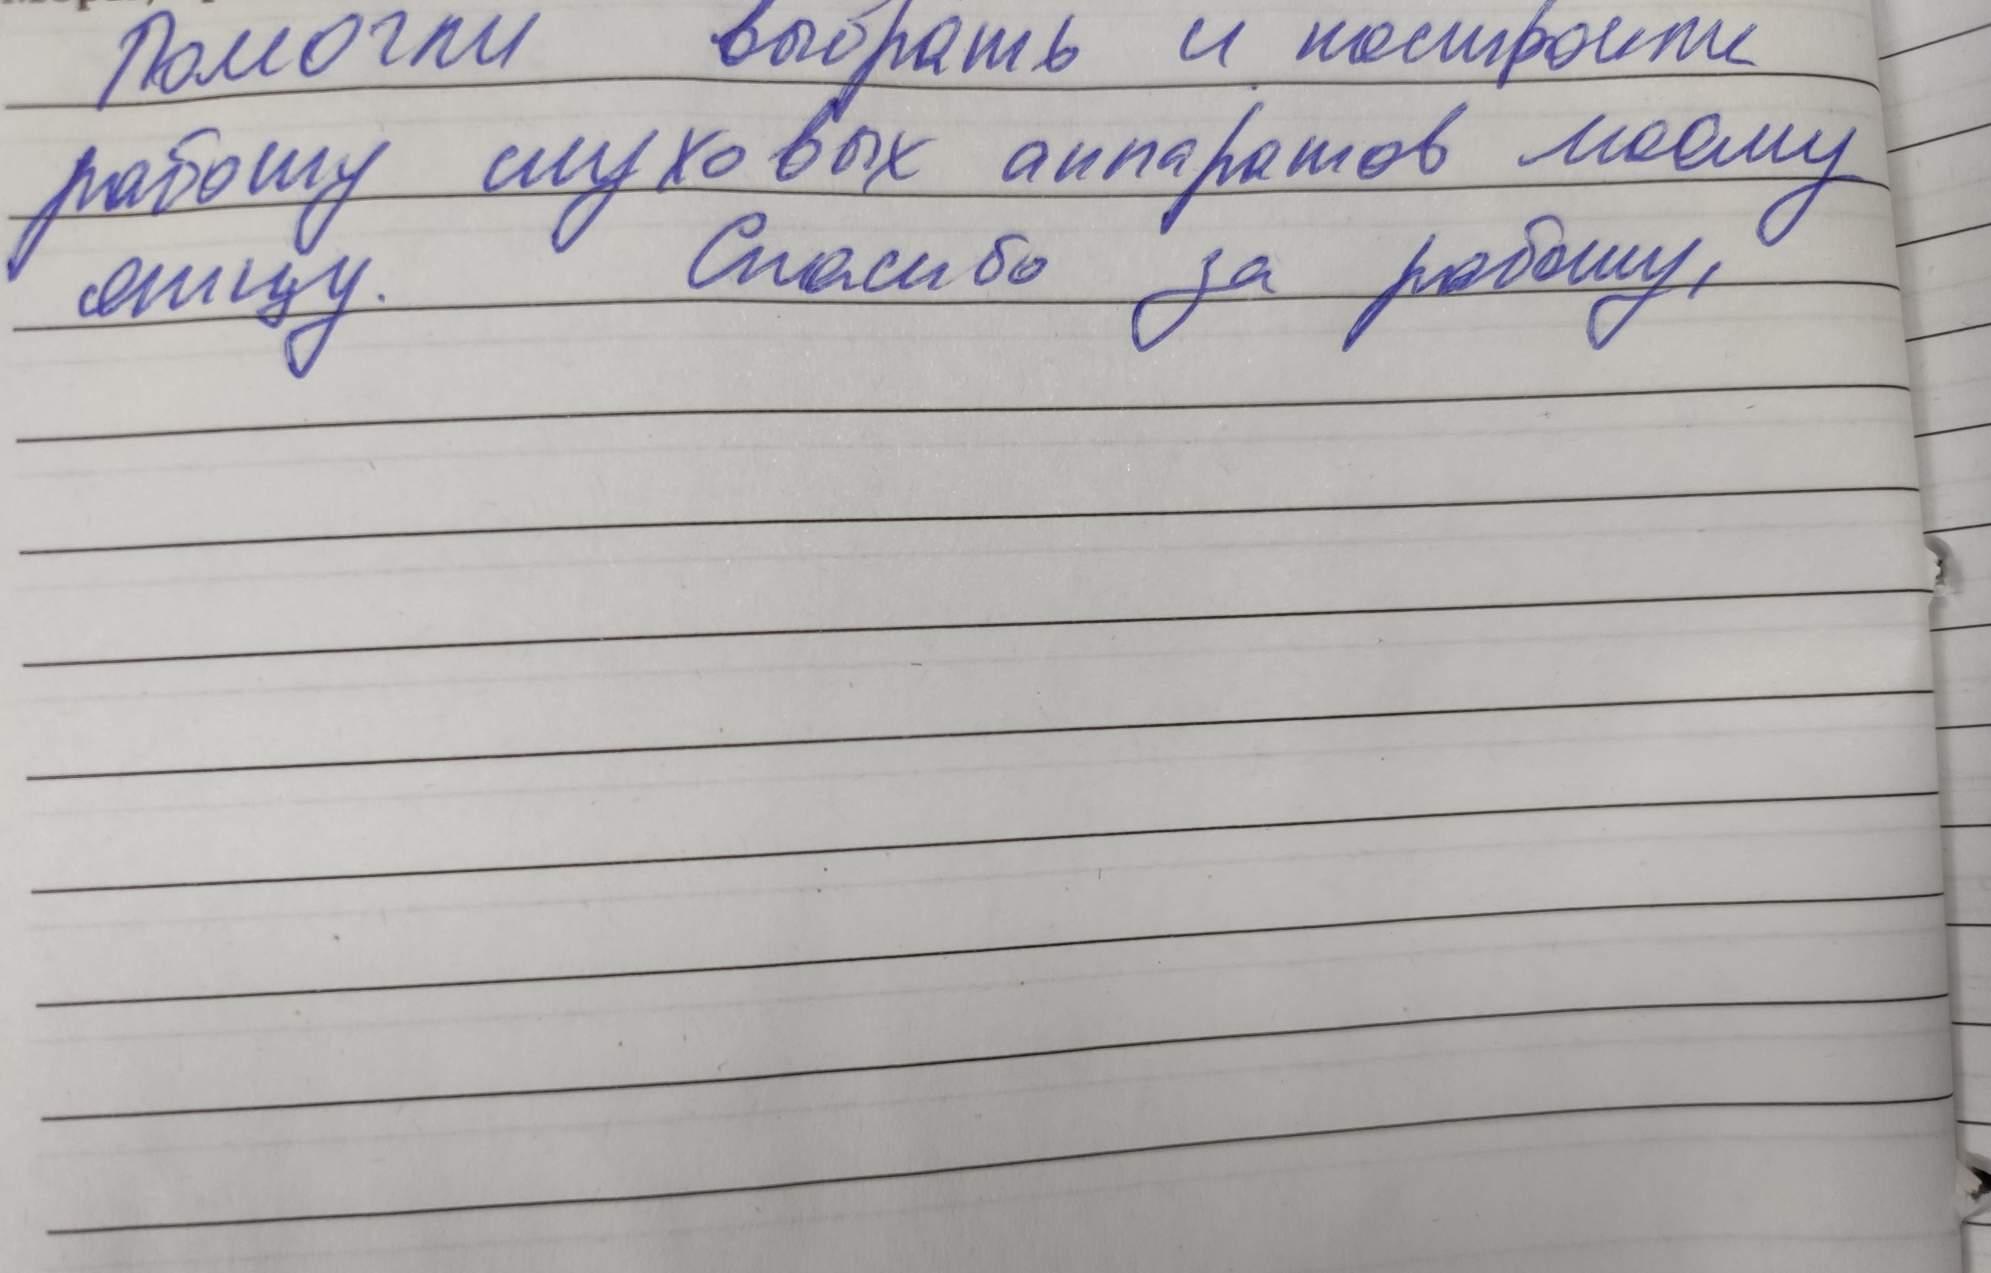 Помогли выбрать и настроить
работу слуховых аппаратов моему
отцу. Спасибо за работу,